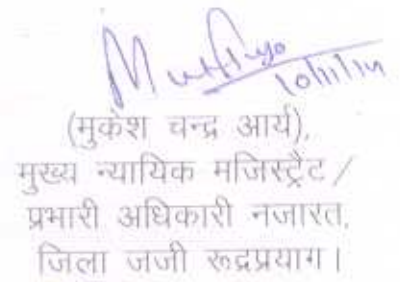 10/11/14
(मुकेश चन्द्र आर्य),
मुख्य न्यायिक मजिस्ट्रैट /
प्रभारी अधिकारी नजारत,
जिला जजी रूद्रप्रयाग।